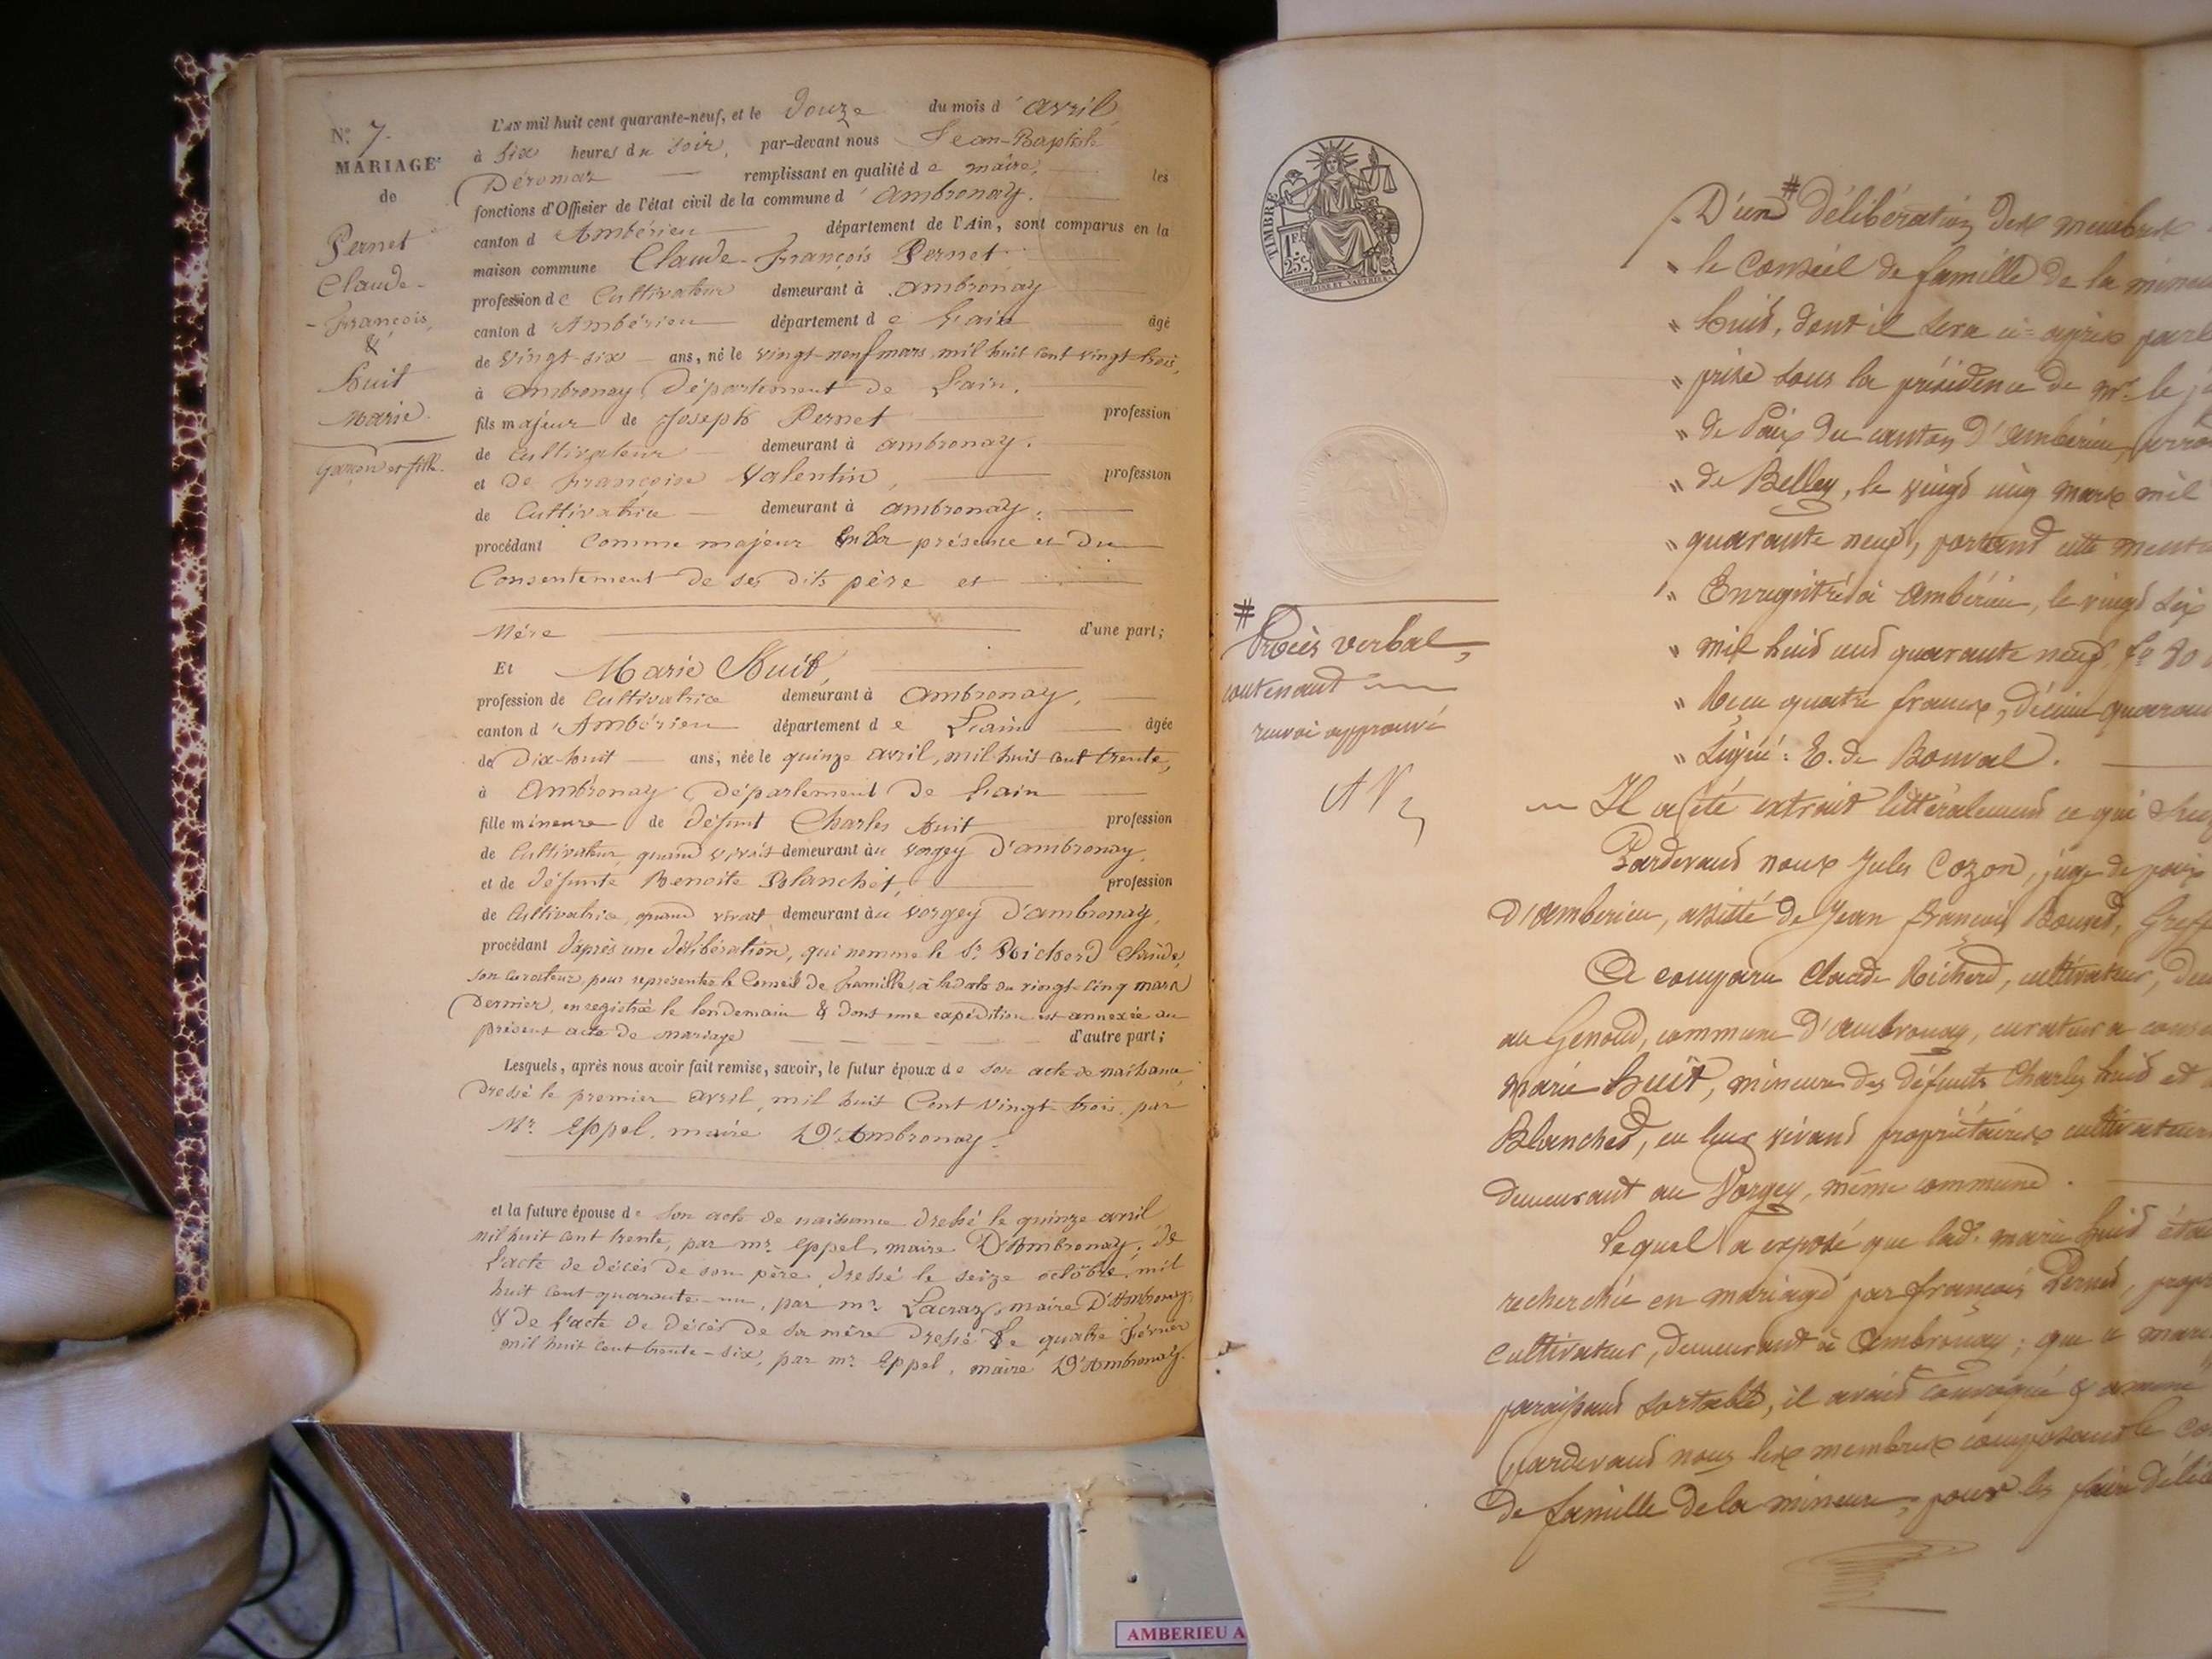 N.° 7.
MARIAGE
de
Pernet
Claude-
-François,
&
Huit
Marie.
garçon et fille.
L'AN mil huit cent quarante-neuf, et le douze du mois d'avril
à six heures du soir, par-devant nous Jean-Baptiste
Déromas remplissant en qualité de maire, les
fonctions d'Officier de l'état civil de la commune d'ambronay.
canton d'Ambérieu département de l'Ain, sont comparus en la
maison commune Claude-François Pernet
profession de Cultivateur demeurant à ambronay
canton d'Ambérieu département de L'ain âgé
de vingt-six ans, né le vingt-neuf mars mil huit cent vingt-trois,
à ambronay, département de L'ain.
fils majeur de Joseph Pernet profession
de Cultivateur demeurant à ambronay.
et de Françoise Valentin, profession
de Cultivatrice demeurant à ambronay.
procédant Comme majeur en la présence et du
Consentement de ses dits père et
Mère d'une part;
Et Marie Huit,
profession de Cultivatrice demeurant à ambronay,
canton d'Ambérieu département de L'ain âgée
de Dix-huit ans, née le quinze avril, mil huit cent trente,
à Ambronay, département de L'ain
fille mineure de défunt Charles Huit profession
de Cultivateur, quand vivait demeurant au Vorgey d'ambronay,
et de défunte Benoite Blanchet, profession
de Cultivatrice, quand vivait demeurant au vorgey d'ambronay,
procédant d'après une délibération, qui nomme le Sr. Richerd Claude,
son curateur, pour représenter le Conseil de famille, à la date du vingt-cinq mars
dernier, enregistrée le lendemain & dont une expédition est annexée au
présent acte de mariage d'autre part;
Lesquels, après nous avoir fait remise, savoir, le futur époux de son acte de naissance,
dressé le premier avril, mil huit Cent vingt-trois, par
Mr. Eppel, maire D'Ambronay.
et la future épouse de son acte de naissance dressé le quinze avril
mil huit cent trente, par mr. Eppel, maire D'Ambronay; de
l'acte de décès de son père, dressé le seize octobre, mil
huit cent quarante-un, par mr. Lacraz, maire D'Ambronay,
& de l'acte de décès de sa mère dressé le quatre février
mil huit cent trente-six, par mr. Eppel, maire D'Ambronay.
TIMBRE
1 F.
25 c.
#
Procès verbal,
contenant
renvoi approuvé
D'un # délibération des membres
" le Conseil de famille de la mineure
" huit, dont il sera ci-après parlé
" prise sous la présidence de Mr. le
" de Paix du canton d'ambérieu,
" de Belley, le vingt cinq mars mil
" quarante neuf, portant cette
" Enregistré à Ambérieu, le vingt six
" mil huit cent quarante neuf, fo 80
" Reçu quatre francs, décime
" Signé: E. de Bonval.
Il a été extrait littéralement ce qui
Pardevant nous Jules Cozon, juge de paix
d'amberieu, assisté de Jean François Bouvet,
A comparu Claude Richerd, cultivateur,
au Genoud, commune d'ambronay, curateur a
marie huit, mineure des défunts Charles huit et
Blanchet, en leur vivant propriétaires cultivateurs
demeurant au Vorgey, même commune.
Lequel a exposé que lad. marie huit
recherchée en mariage par françois Pernet,
cultivateur, demeurant à ambronay; que
paraissant sortable, il avait convoqué &
pardevant nous les membres composant le
de famille de la mineure, pour les faire
AMBERIEU A